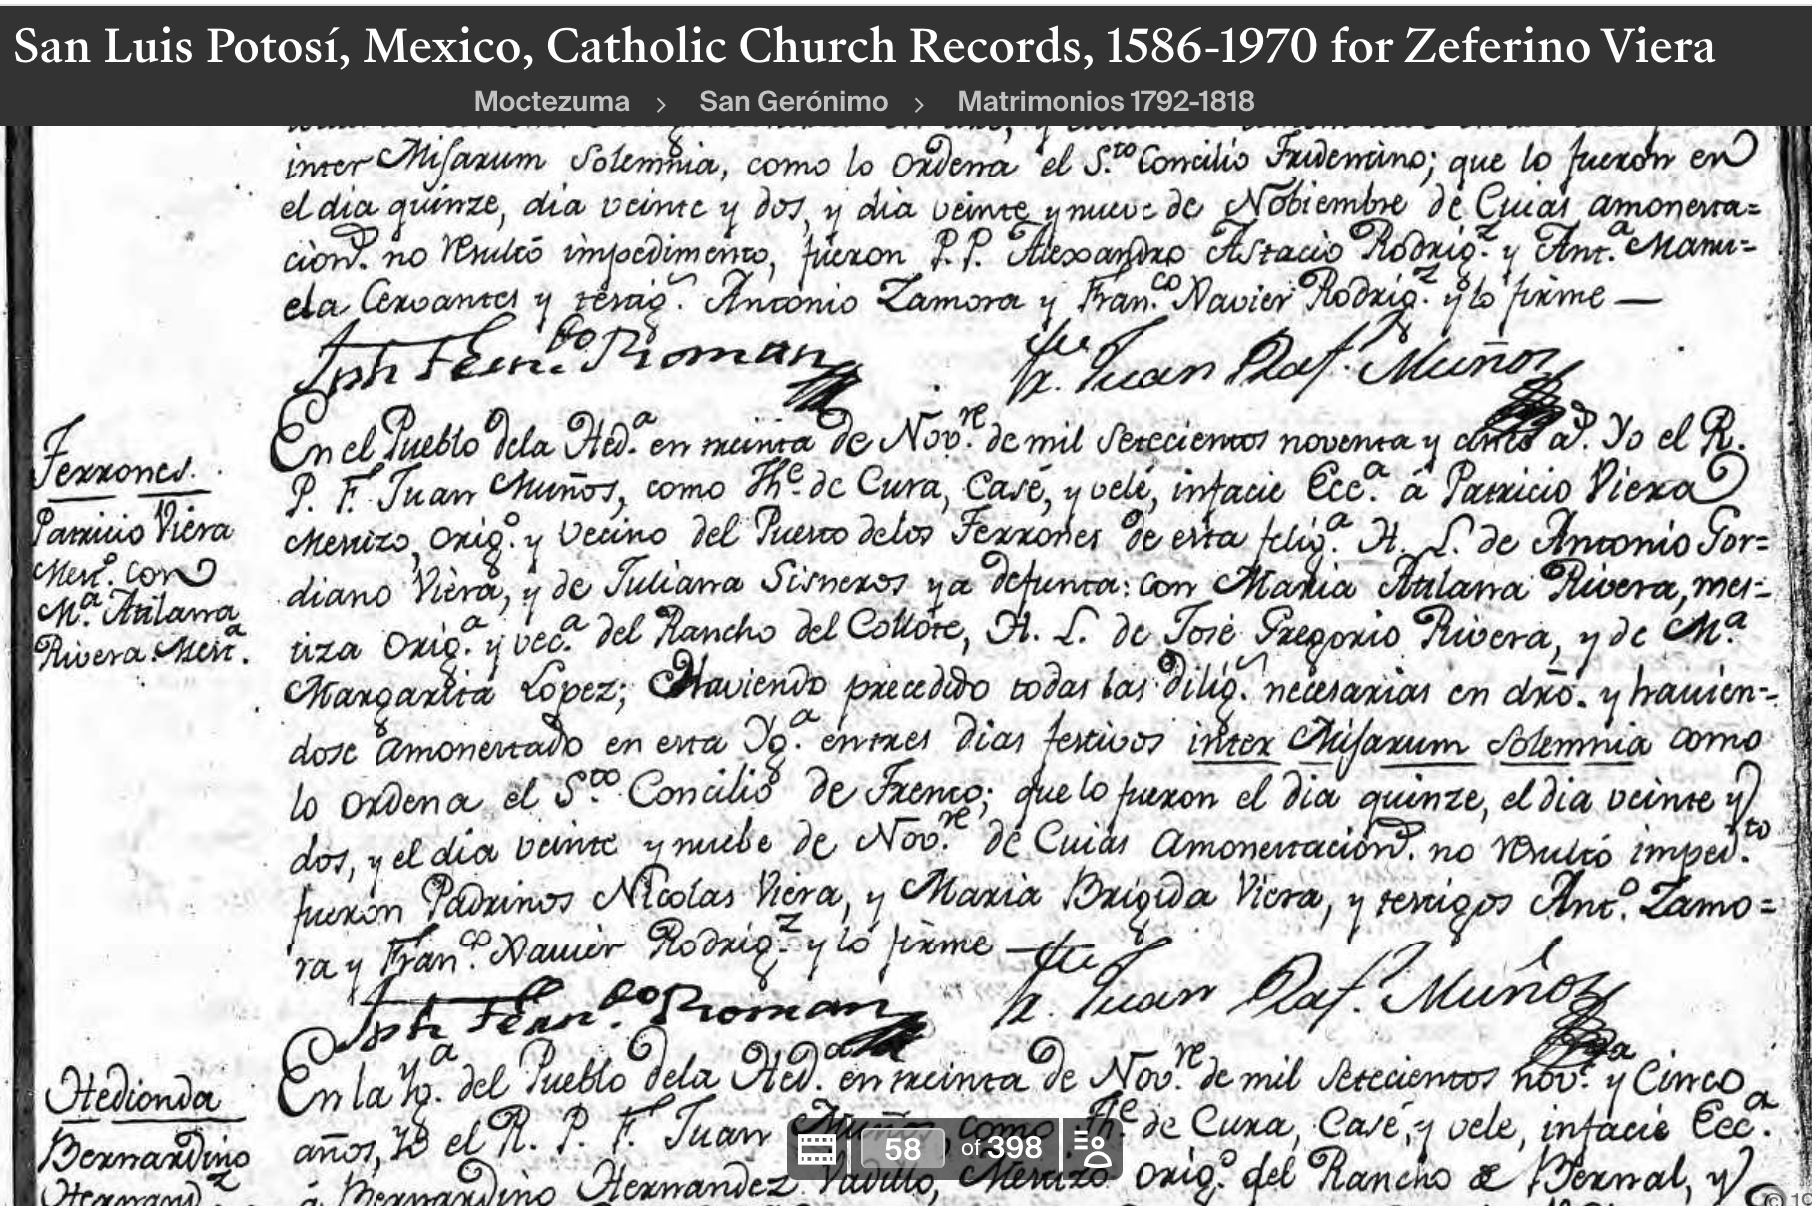 San Luis Potosí, Mexico, Catholic Church Records, 1586-1970 for Zeferino Viera
Moctezuma > San Gerónimo > Matrimonios 1792-1818
inter Misarum Solemnia, como lo ordena el S.to Concilio Tridentino; que lo fueron en
el dia quinze, dia veinte y dos, y dia veinte y nueve de Nobiembre de Cuias amonesta=
cion.s no resultó impedimento, fueron P.P. Alexandro Astacio Rodrig.z y Ant.a Manu=
ela Cervantes y testig.s Antonio Zamora y Fran.co Xavier Rodrig.z y lo firme —
Jph Fern.do Roman
Fr. Juan Raf. Muñoz
Terrones.
Patricio Viera
Mest.o con
M.a Atilana
Rivera. Mest.a
En el Pueblo dela Hed.a en treinta de Nov.re de mil Setecientos noventa y cinco a.s Yo el R.
P. F. Juan Muños, como The. de Cura, Casé, y velé, infacie Ecc.a á Patricio Viera
Mestizo, orig.o y Vecino del Puesto delos Terrones de esta felig.a H. L. de Antonio Gor=
diano Viera, y de Juliana Sisneros ya defunta: con Maria Atilana Rivera, mes=
tiza orig.a y vec.a del Rancho del Collote, H. L. de José Gregorio Rivera, y de M.a
Margarita Lopez; Haviendo precedido todas las dilig.s necesarias en dro. y havien=
dose amonestado en esta Yg.a entres dias festivos inter Misarum Solemnia como
lo ordena el S.to Concilio de Trento; que lo fueron el dia quinze, el dia veinte y
dos, y el dia veinte y nuebe de Nov.re de Cuias Amonestacion.s no resultó imped.to
fueron Padrinos Nicolas Viera, y Maria Brigida Viera, y testigos Ant.o Zamo=
ra y Fran.co Xavier Rodrig.z y lo firme —
Jph Fern.do Roman
Fr. Juan Raf. Muñoz
Hedionda
Bernardino
Hernand.z
En la Yg.a del Pueblo dela Hed.a en treinta de Nov.re de mil Setecientos nov.ta y Cinco
años, Yo el R. P. F. Juan Muños, como The. de Cura, Casé, y vele, infacie Ecc.a
á Bernardino Hernandez Vadillo, Mestizo orig.o del Rancho de Bernal, y
58 of 398